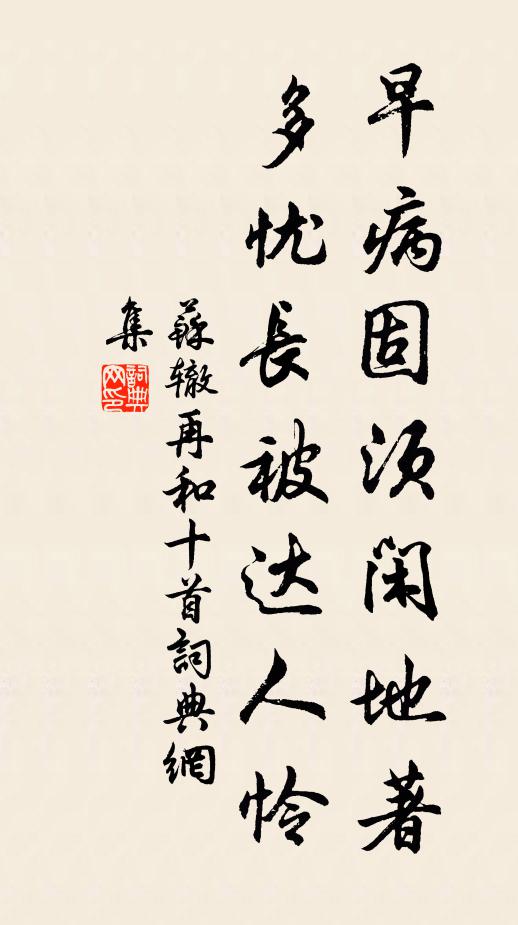 早病固须闲地著
多忧長被达人怜
蘇辙再和十首詞典網
集
詞典
网印